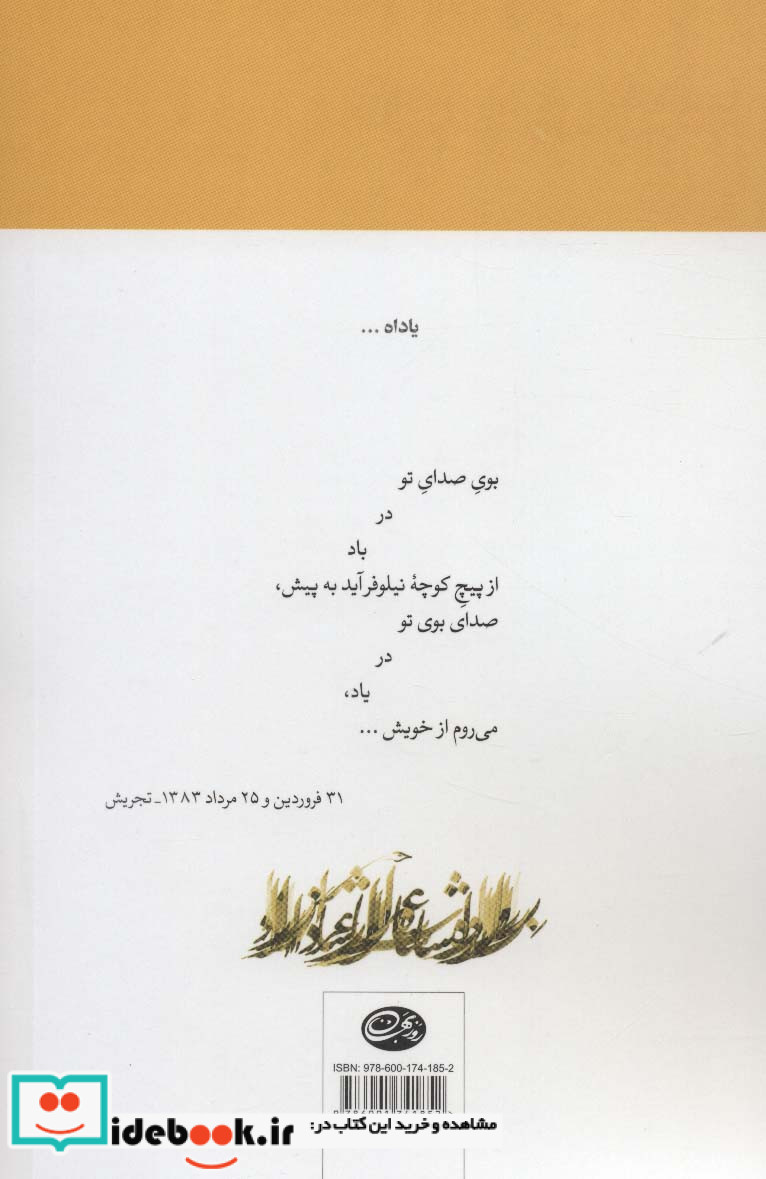 یاداه ...
بویِ صدایِ تو
در
باد
از پیچِ کوچهٔ نیلوفر آید به پیش،
صدای بوی تو
در
یاد،
می‌روم از خویش ...
۳۱ فروردین و ۲۵ مرداد ۱۳۸۳ـ تجریش
روزبهان
ISBN: 978-600-174-185-2
مشاهده و خرید این کتاب در:
idebook.ir